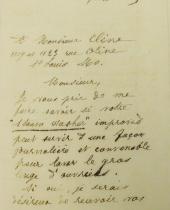 Monsieur Cline
1119 et 1123 rue Olive
St Louis Mo.
Monsieur,
Je vous prie de me
faire savoir si votre
"Steam Washer" improved
peut servir d'une façon
journalière et convenable
pour laver le gros
linge d'ouvriers.
Si oui, je serais
désireux de recevoir vos